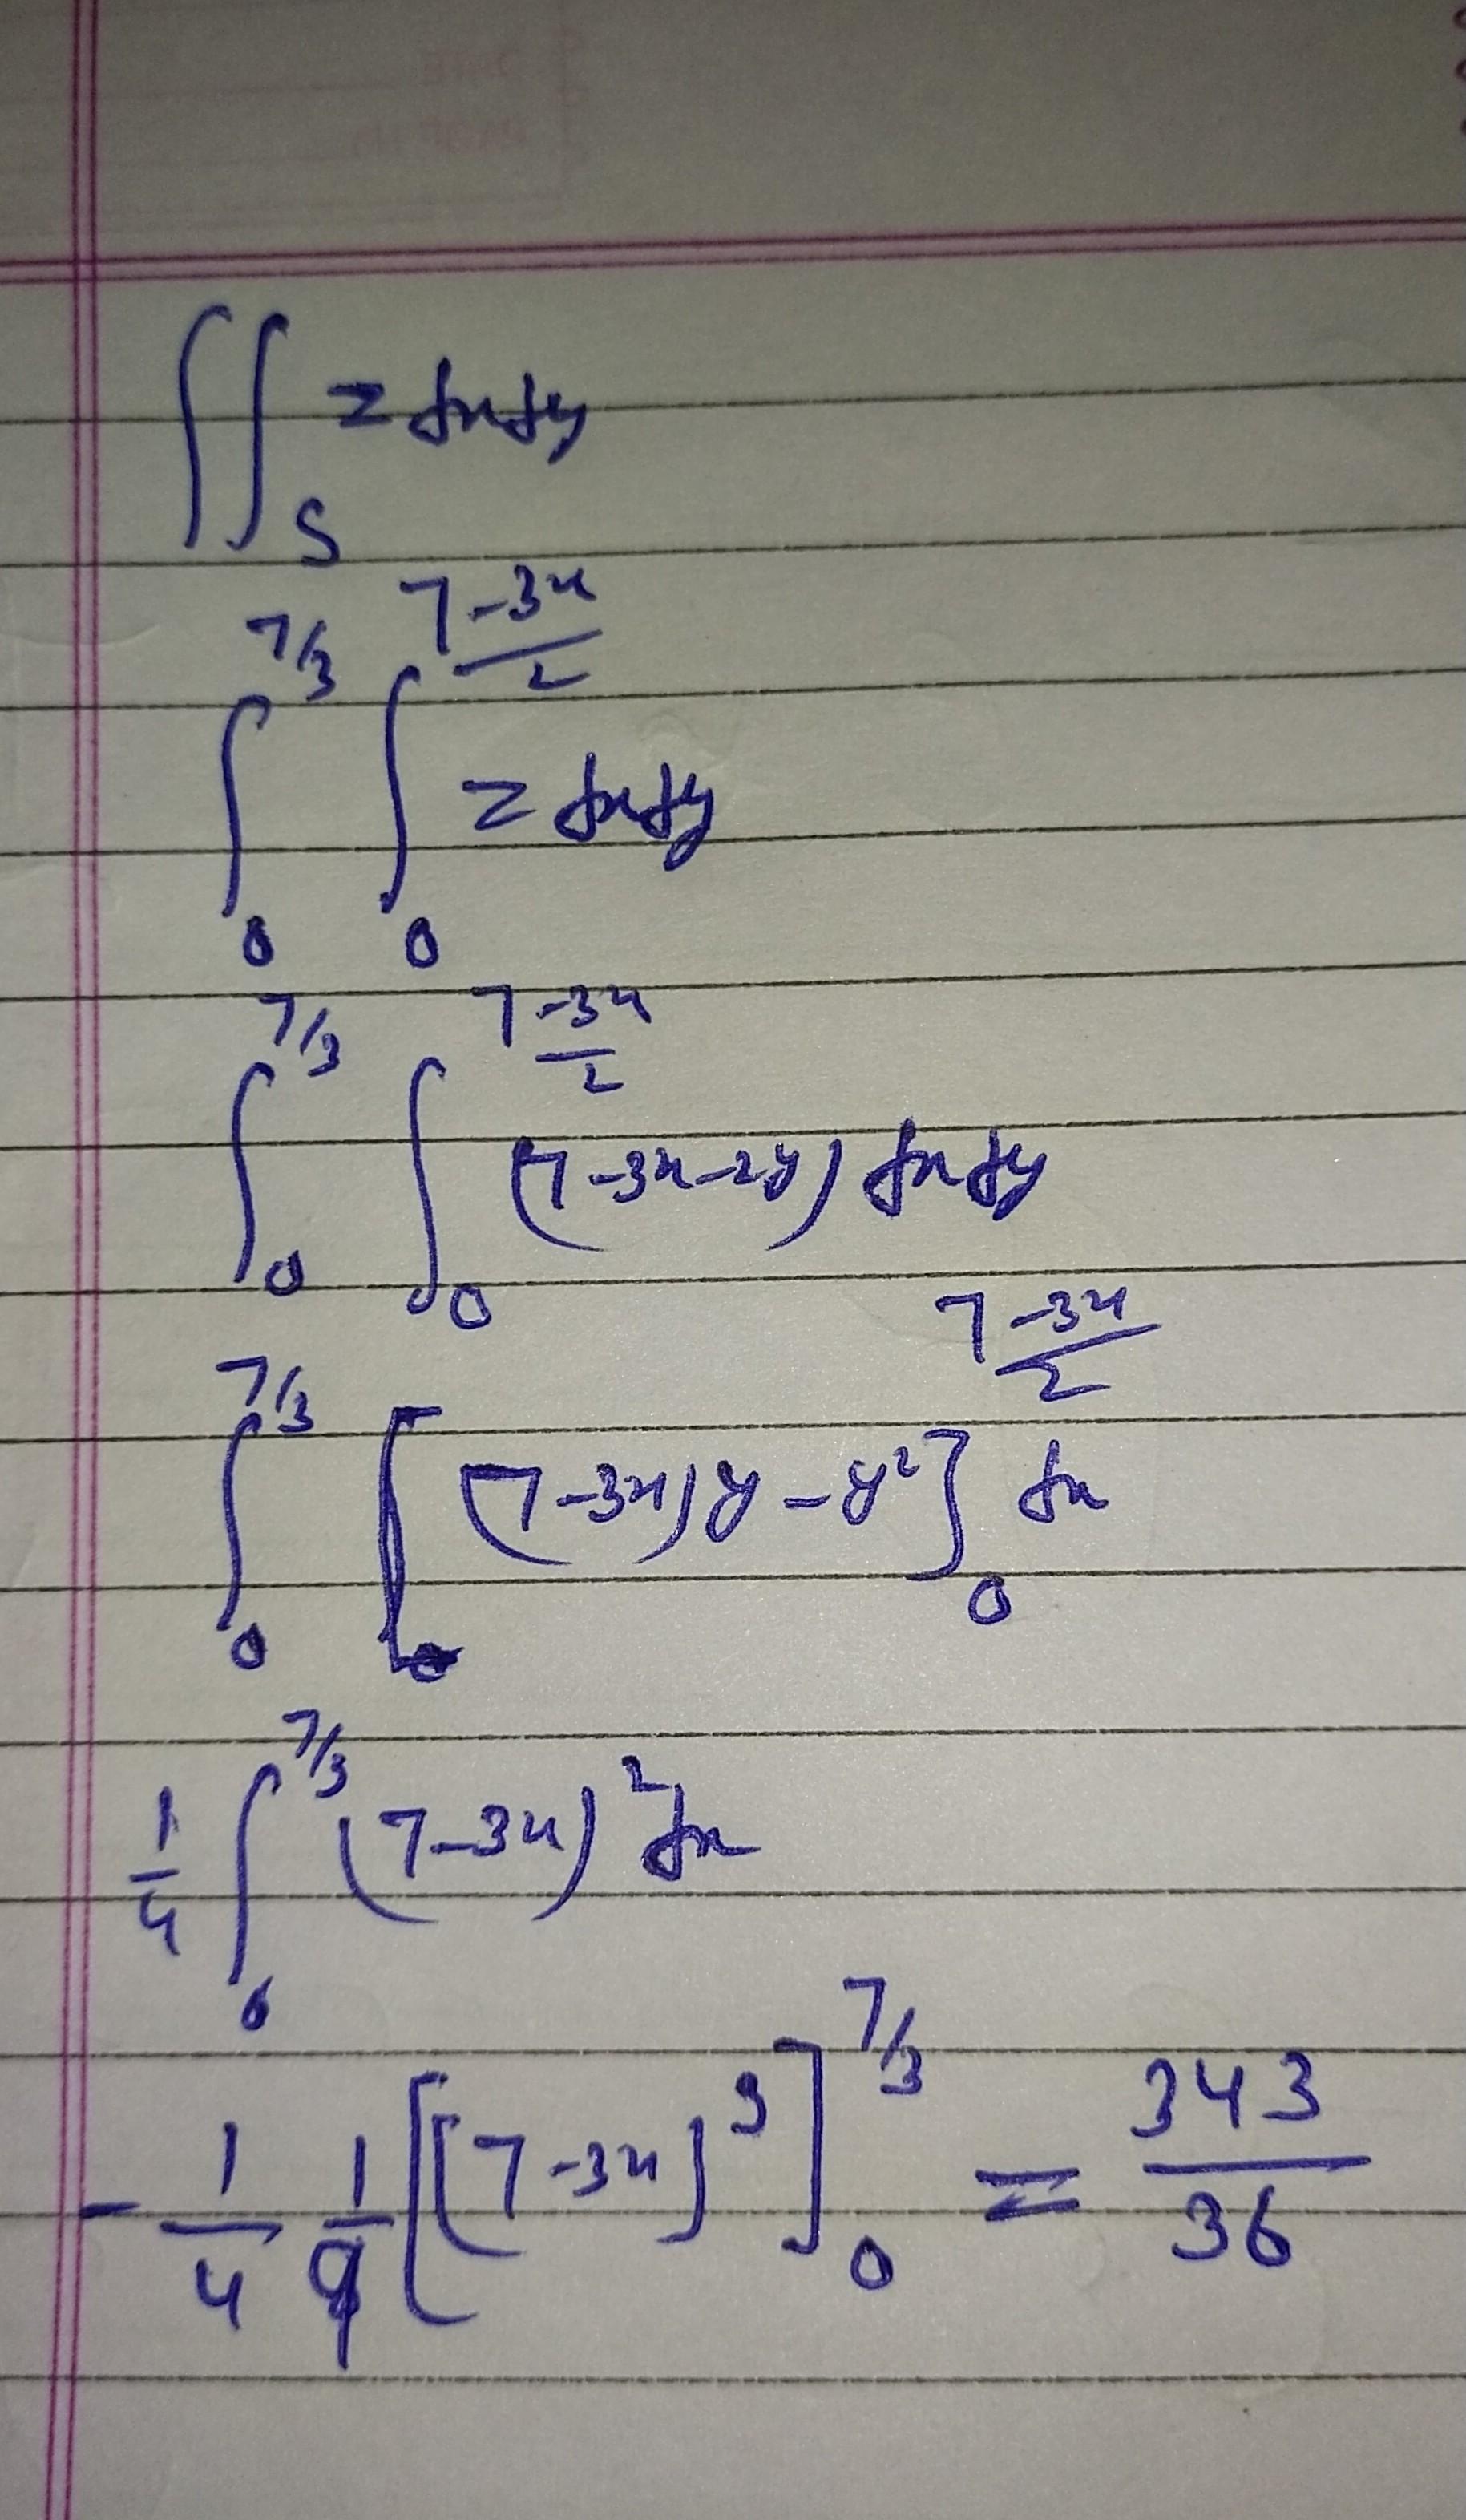 ∫∫_S z dx dy
∫_0^{7/3} ∫_0^{(7-3x)/2} z dx dy
∫_0^{7/3} ∫_0^{(7-3x)/2} (7-3x-2y) dx dy
∫_0^{7/3} [(7-3x)y - y²]_0^{(7-3x)/2} dx
1/4 ∫_0^{7/3} (7-3x)² dx
- 1/4 1/9 [(7-3x)³]_0^{7/3} = 343/36